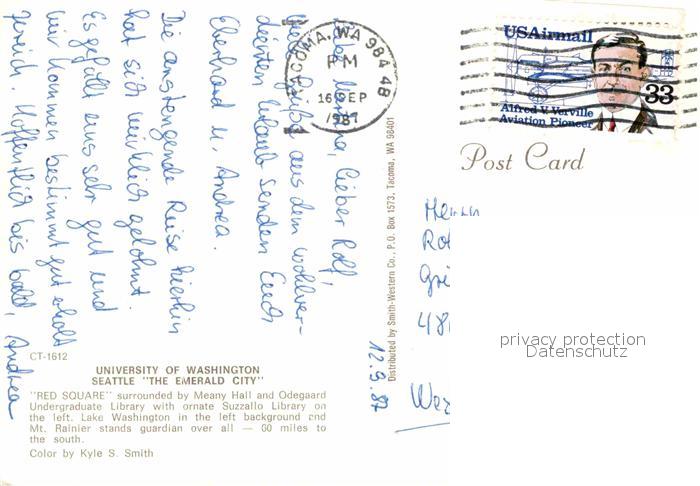 Lieber Rolf,
Grüße aus dem wohlver-
dienten Urlaub senden Euch
Eberhard u. Andrea.
Die anstrengende Reise hierhin
hat sich wirklich gelohnt.
Es gefällt uns sehr gut und
wir kommen bestimmt gut erholt
zurück. Hoffentlich bis bald, Andrea
12.9.87
TACOMA, WA 98448
PM
16 SEP
1987
USAirmail
33
Alfred V. Verville
Aviation Pioneer
Post Card
Distributed by Smith-Western Co., P.O. Box 1573, Tacoma, WA 98401
privacy protection
Datenschutz
CT-1612
UNIVERSITY OF WASHINGTON
SEATTLE "THE EMERALD CITY"
"RED SQUARE" surrounded by Meany Hall and Odegaard
Undergraduate Library with ornate Suzzallo Library on
the left. Lake Washington in the left background and
Mt. Rainier stands guardian over all — 60 miles to
the south.
Color by Kyle S. Smith